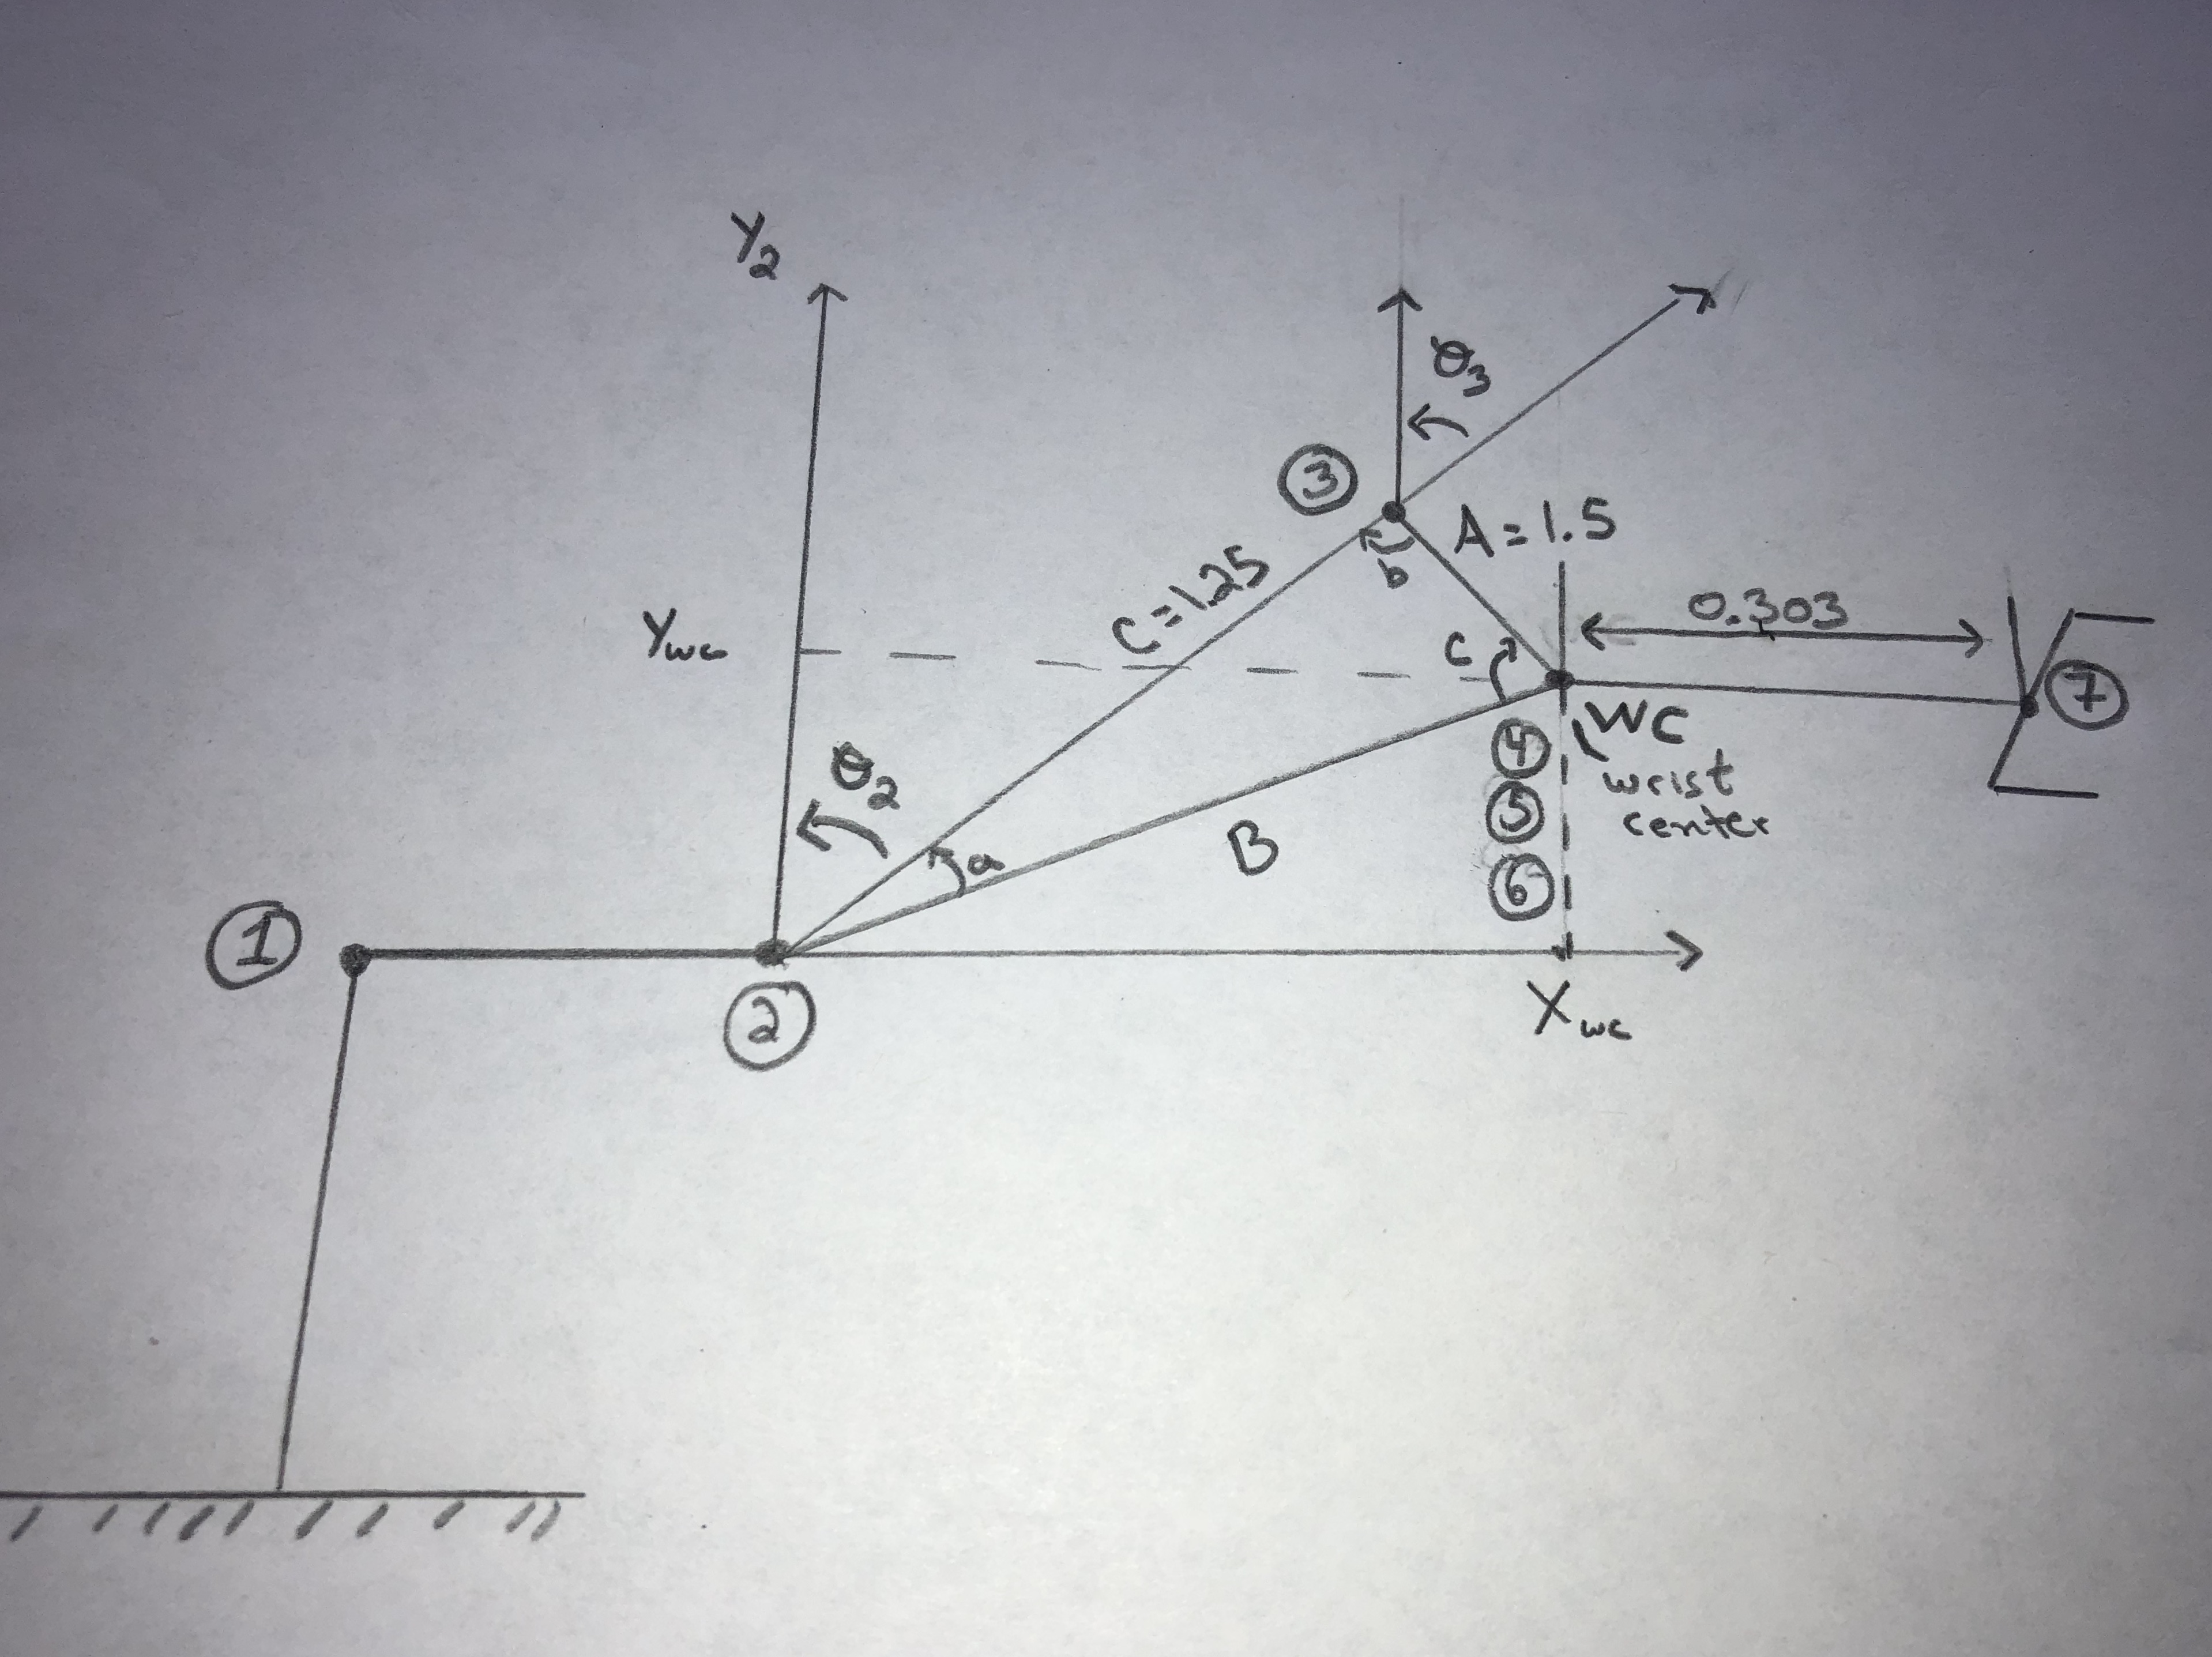 Y2
θ3
③
A=1.5
C=1.25
b
0.303
Ywc
c
⑦
WC
④
wrist
center
⑤
θ2
a
B
⑥
①
②
Xwc